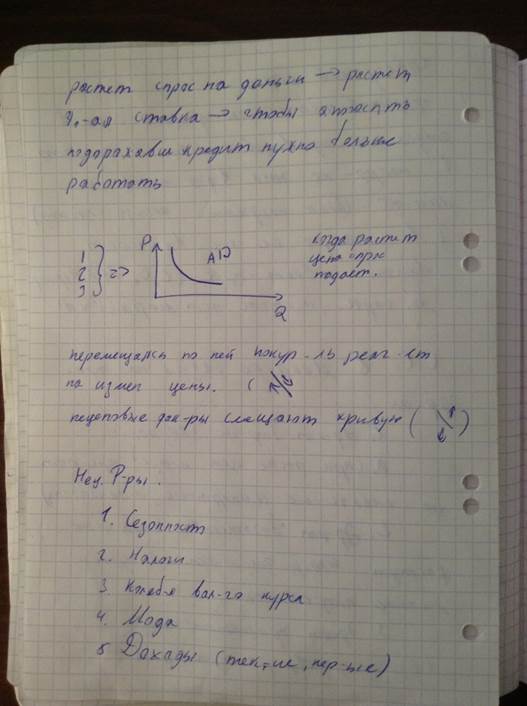 растет спрос на деньги → растет
%-ая ставка → чтобы
подорожавш кредит нужно больше
работать
1
2
3
=>
P
AD
Q
когда растет
цена спрос
падает.
перемещаясь по ней покуп-ль реаг-ет
на измен цены. (
неценовые фак-ры смещают кривую ( )
Нец. Р-ры.
1. Сезонност
2. Налоги
3. Колеб-я вал-го курса
4. Мода
5 Дахады (тек,-ие, пер-ые)